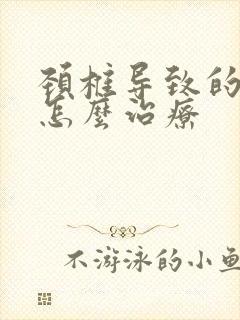 颈椎导致的
怎麼治療
不游泳的小鱼